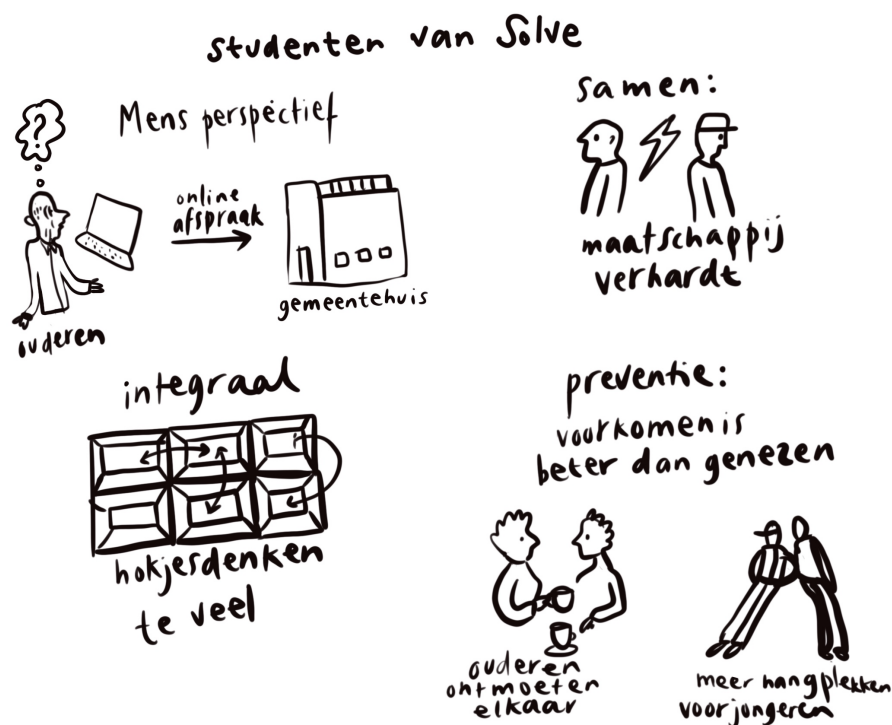 studenten van Solve
Mens perspectief
?
online
afspraak
gemeentehuis
ouderen
samen:
maatschappij
verhardt
integraal
hokjesdenken
te veel
preventie:
voorkomen is
beter dan genezen
ouderen
ontmoeten
elkaar
meer hangplekken
voor jongeren